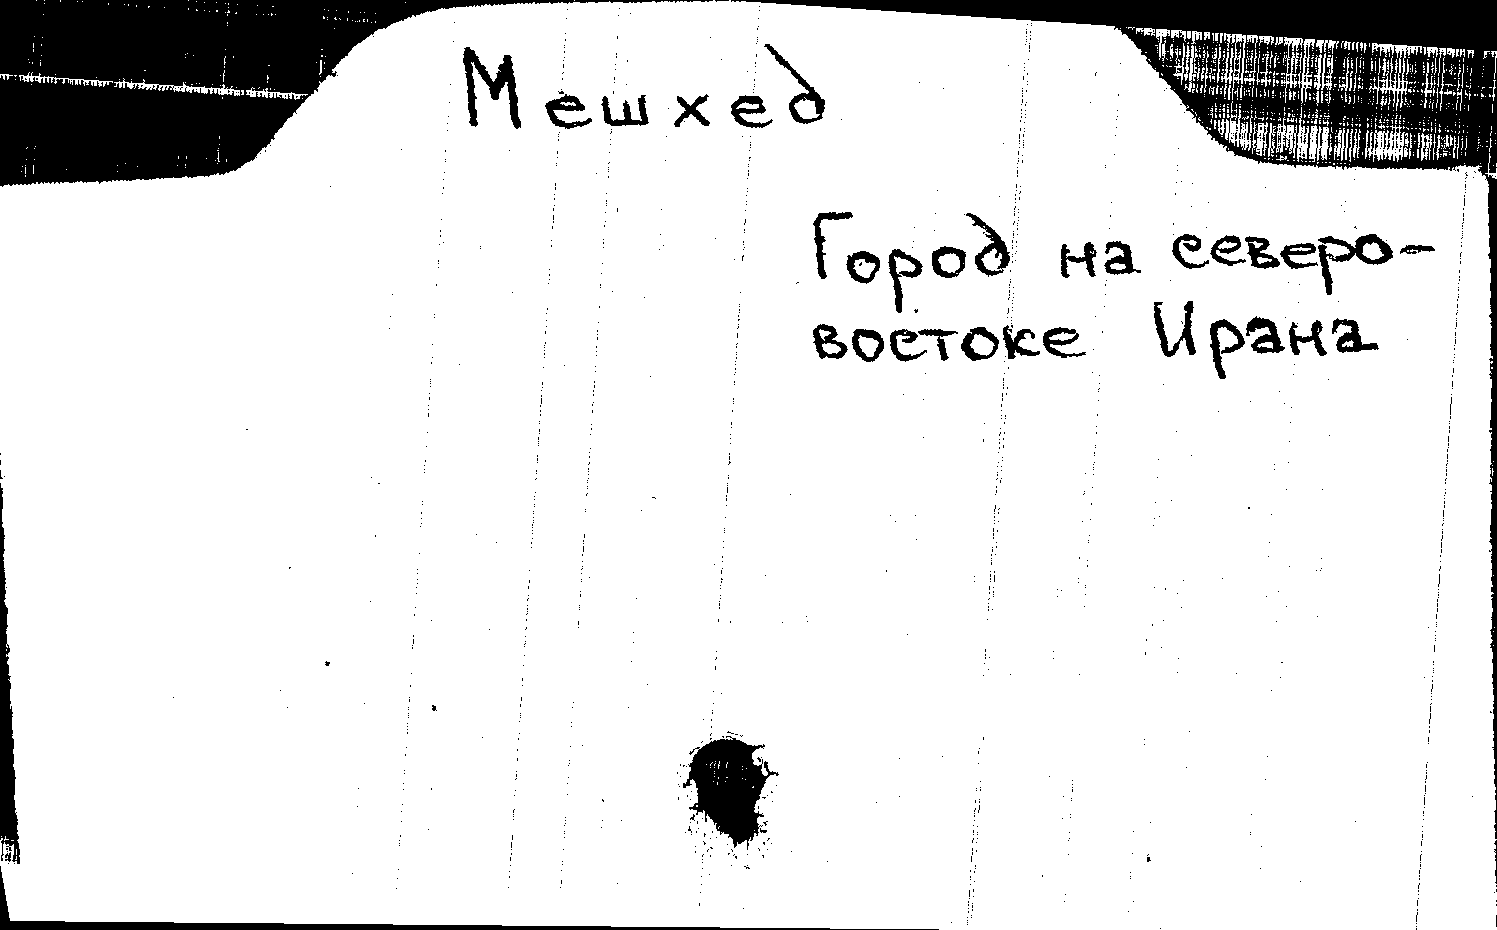 Мешхед
Город на северо-
востоке Ирана